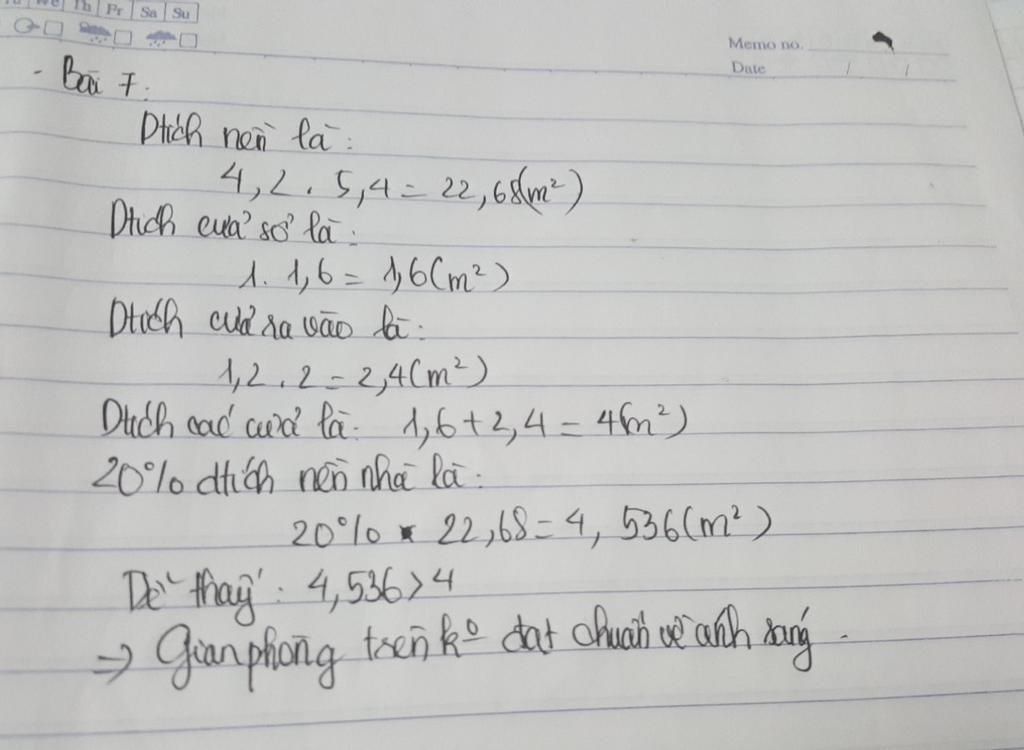 We Th Fr Sa Su
Memo no.
Date / /
- Bài 7:
Dtích nền là:
4,2 . 5,4 = 22,68(m²)
Dtích cửa sổ là:
1. 1,6 = 1,6(m²)
Dtích cửa ra vào là:
1,2 . 2 = 2,4(m²)
Dtích các cửa là: 1,6 + 2,4 = 4(m²)
20% dtích nền nhà là:
20% . 22,68 = 4, 536(m²)
Dễ thấy: 4,536 > 4
=> Gian phòng trên kº đạt chuẩn về ánh sáng.